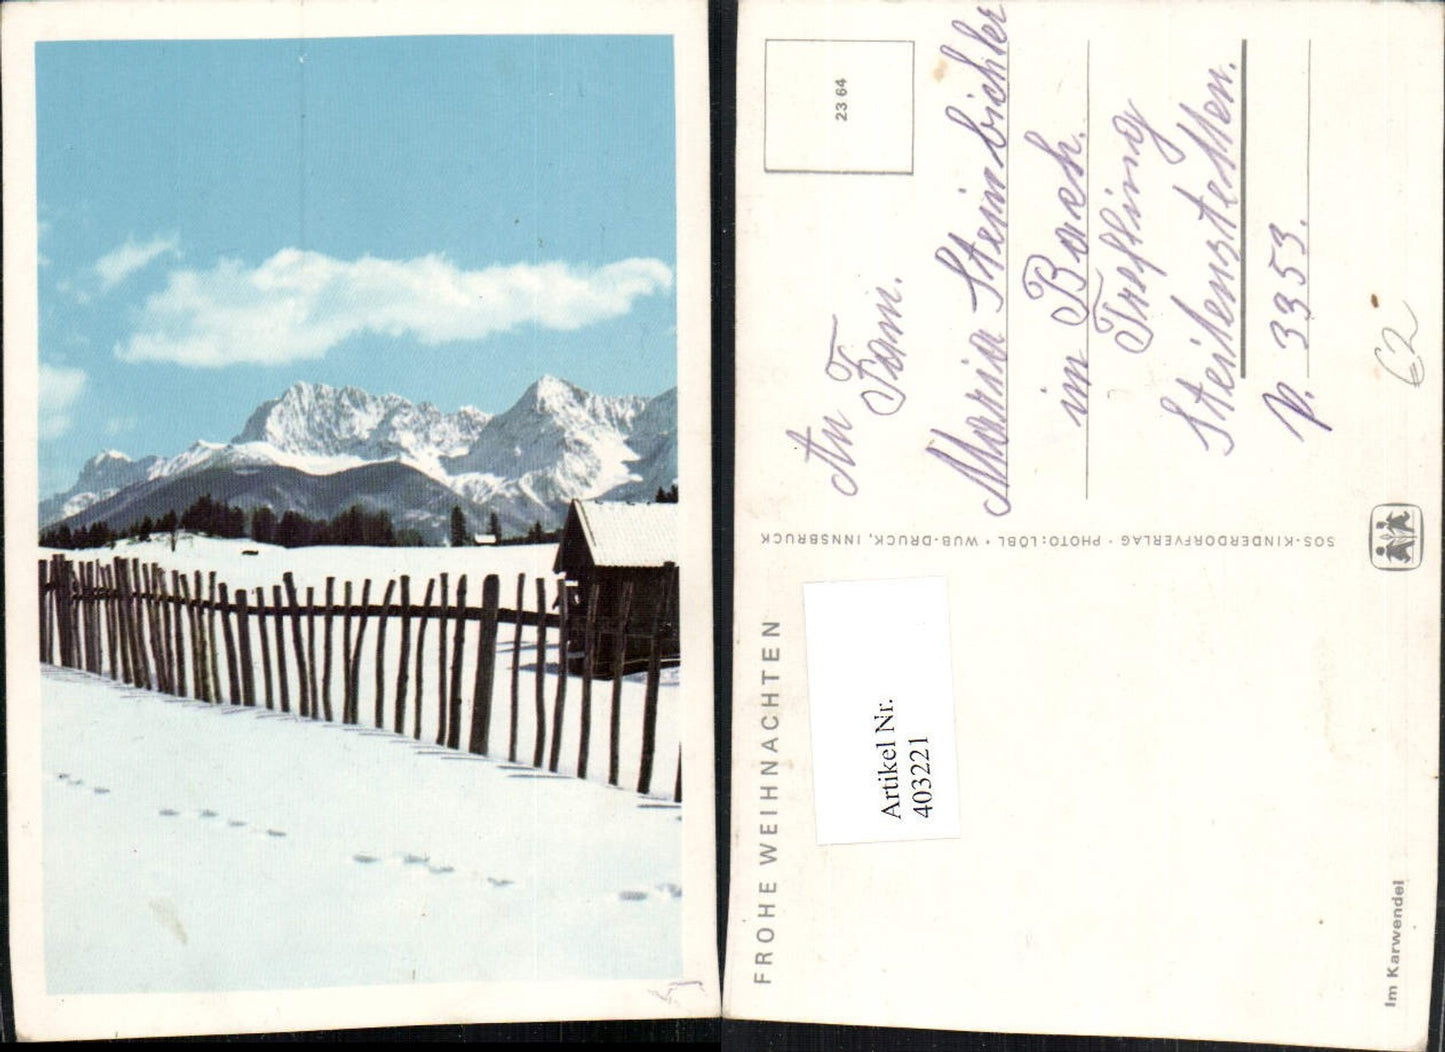 FROHE WEIHNACHTEN
Im Karwendel
Artikel Nr.
403221
SOS-KINDERDORFVERLAG · PHOTO: LÖBL · WUB-DRUCK, INNSBRUCK
23 64
An
Fam.
Maria Steinbichler
im Bach.
Trefling
Seitenstetten.
P. 3353.
62